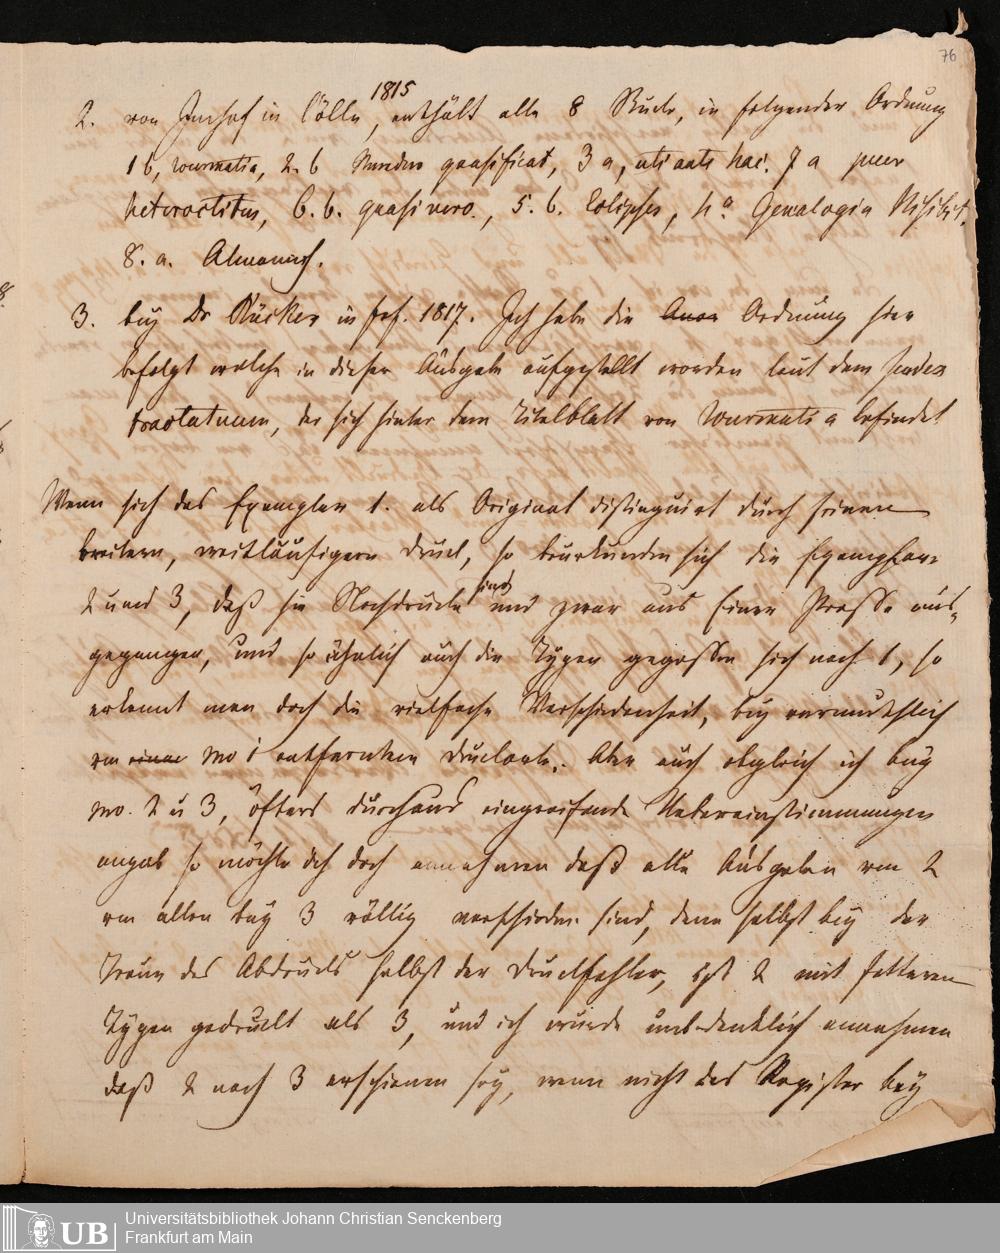 76
1815
2. von Imhof in Cölln, enthält alle 8 Stücke, in folgender Ordnung
1 b, Wurmatia, 2. b Mundus quasificat, 3 a, uti ante hac. 7 a puer
heteroclitus, 6. b. quasi vero., 5. b. Eclipses, 4.a Genealogia Nisibit.
8. a. Almanach.
3. bey Dr Rücker in frf. 1817. Ich habe die Ordnung hier
befolgt welche in dieser Ausgabe aufgestellt worden laut dem Index
tractatuum, der sich hinter dem Titelblatt von Wurmatia befindet
Wenn sich das Exemplar 1. als Original distinguirt durch seinen
breitern, weitläufigern Druck, so beurkunden sich die Exemplare
2 und 3, daß sie Nachdrucke sind und zwar aus Einer Presse aus-
gegangen, und so ähnlich auch die Typen gegossen sich nach 1, so
erkennt man doch die vielfache Verschiedenheit, bey vermuthlich
von No 1 entfernten Druckorte. Aber auch obgleich ich bey
No. 2 u 3, öfters durchaus eingreifende Uebereinstimmungen
angab so möchte ich doch annehmen daß alle Ausgaben von 2
von allen bey 3 völlig verschieden sind, denn selbst bey der
Treue des Abdrucks selbst der Druckfehler, ist 2 mit fetteren
Typen gedruckt als 3, und ich würde unbedenklich annehmen
daß 2 nach 3 erschienen sey, wenn nicht das Register bey
UB Universitätsbibliothek Johann Christian Senckenberg
Frankfurt am Main